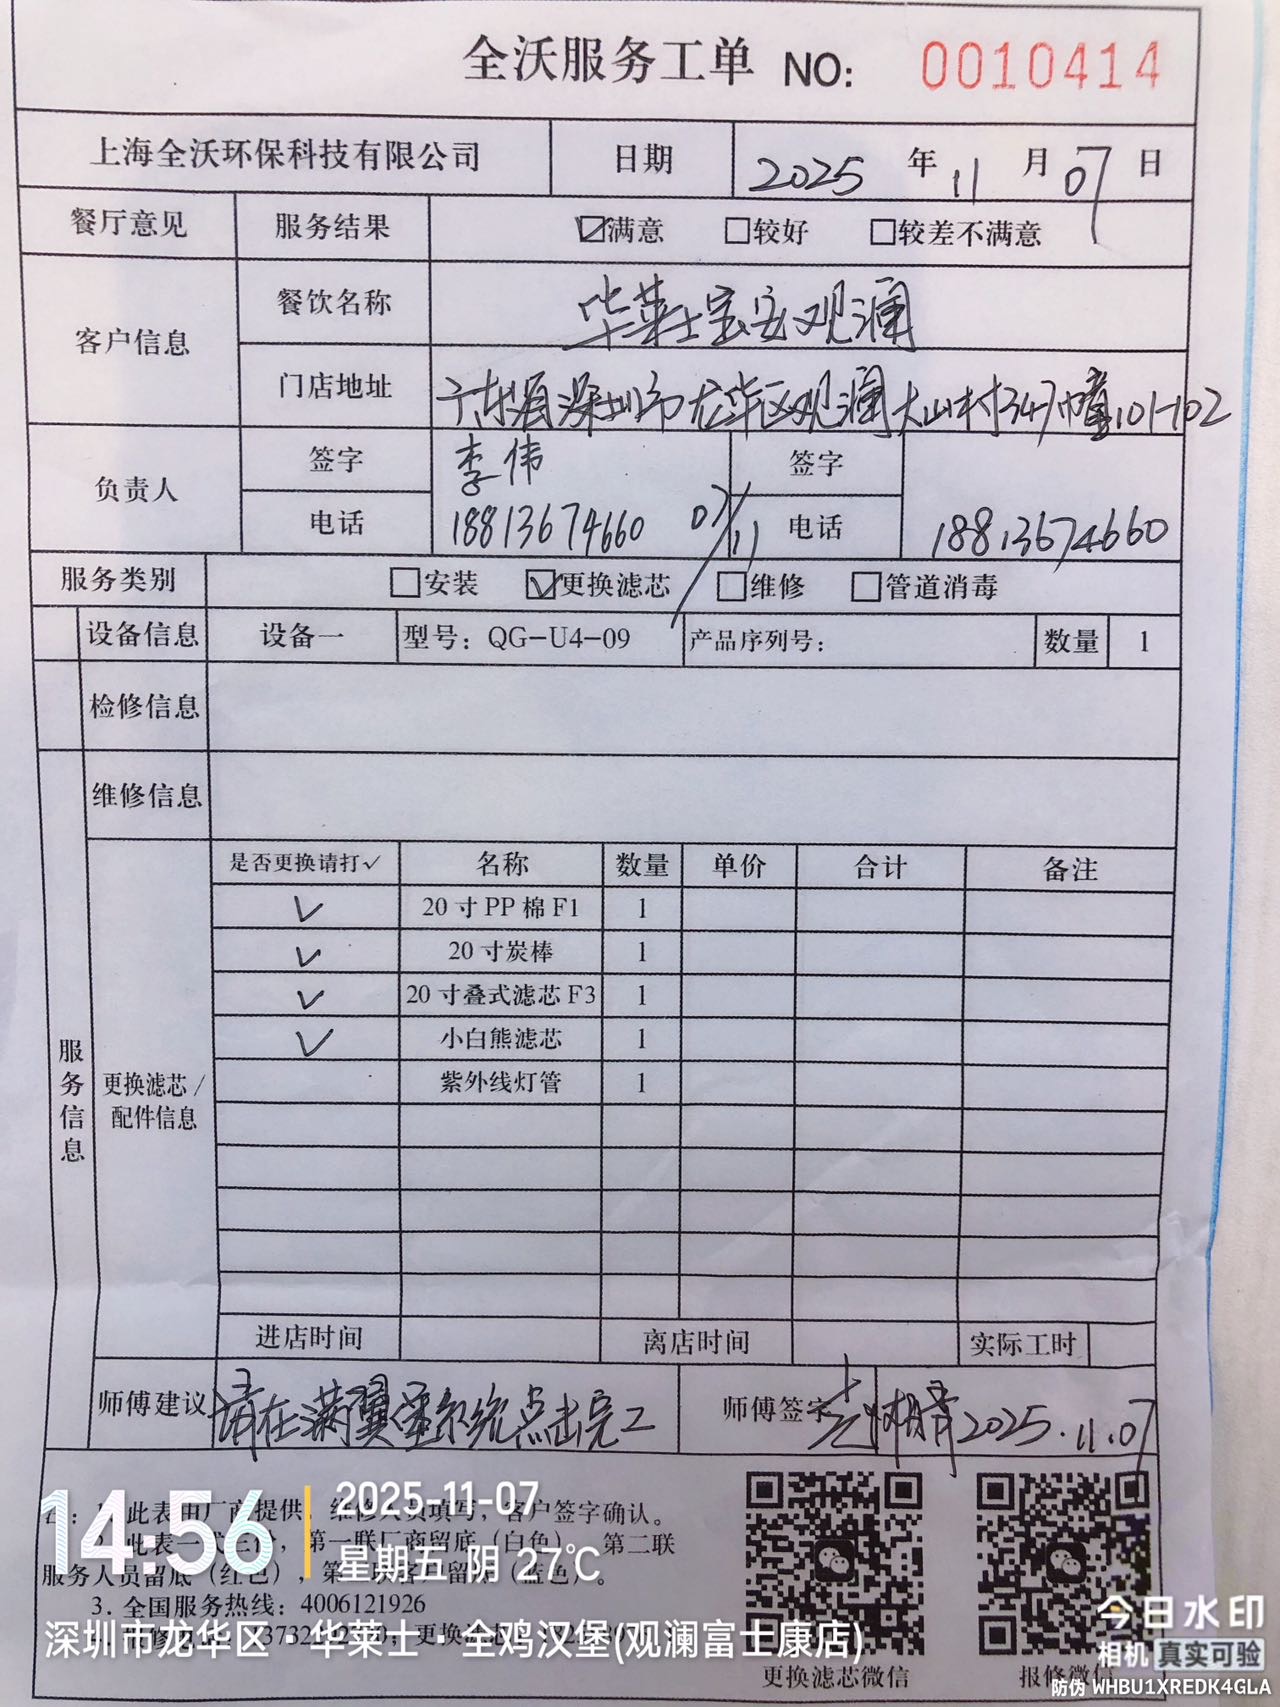 全沃服务工单 NO: 0010414
上海全沃环保科技有限公司 日期 2025 年 11 月 07 日
餐厅意见 服务结果 ☑满意 □较好 □较差不满意
客户信息 餐饮名称 华莱士宝安观澜
门店地址 广东省深圳市龙华区观澜大山村347幢101-102
负责人 签字 李伟 签字
电话 18813674660 07/11 电话 18813674660
服务类别 □安装 ☑更换滤芯 □维修 □管道消毒
设备信息 设备一 型号: QG-U4-09 产品序列号: 数量 1
检修信息
维修信息
服务信息
更换滤芯/
配件信息
是否更换请打✓ 名称 数量 单价 合计 备注
✓ 20寸PP棉F1 1
✓ 20寸炭棒 1
✓ 20寸叠式滤芯F3 1
✓ 小白熊滤芯 1
紫外线灯管 1
进店时间 离店时间 实际工时
师傅建议 请在满翼蛋系统点击完工 师傅签字 2025.11.07
此表由厂商提供,维修人员填写,客户签字确认。
此表一式三份,第一联厂商留底(白色) 第二联
服务人员留底(红色),
3. 全国服务热线: 4006121926
更换滤芯微信 报修微信
14:56 2025-11-07
星期五 阴 27℃
深圳市龙华区·华莱士·全鸡汉堡(观澜富士康店)
今日水印
相机 真实可验
防伪 WHBU1XREDK4GLA